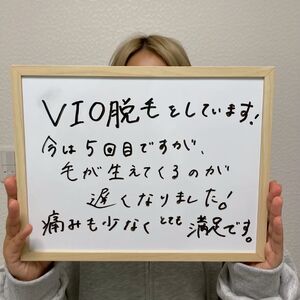 VIO脱毛をしています!
今は5回目ですが、
毛が生えてくるのが
遅くなりました!
痛みも少なくとても満足です。